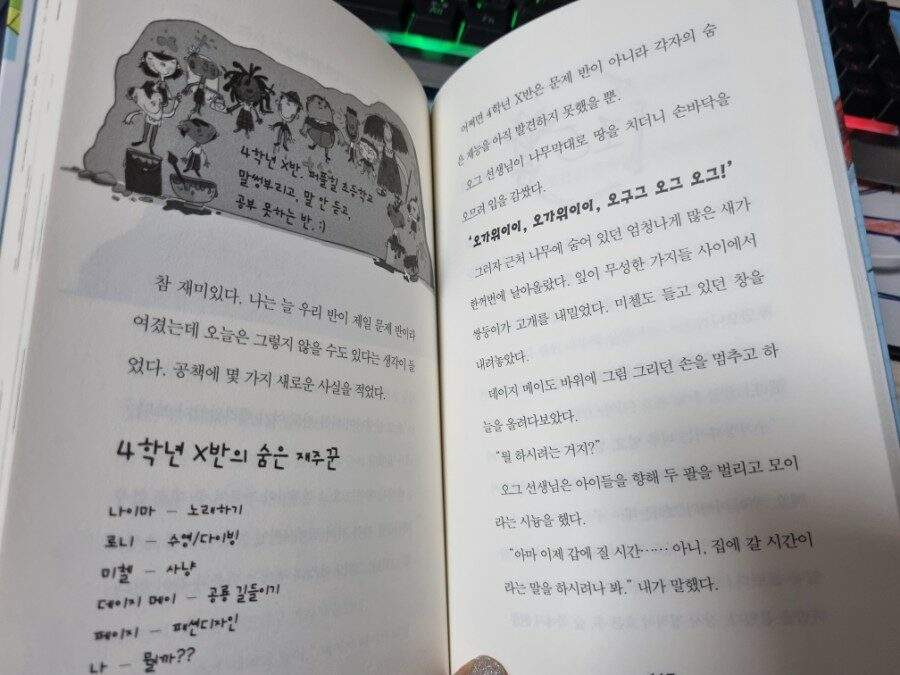 4학년 X반. 퍼플힐 초등학교
말썽부리고, 말 안 듣고,
공부 못하는 반. :)
참 재미있다. 나는 늘 우리 반이 제일 문제 반이라
여겼는데 오늘은 그렇지 않을 수도 있다는 생각이 들
었다. 공책에 몇 가지 새로운 사실을 적었다.
4학년 X반의 숨은 재주꾼
나이마 – 노래하기
로니 – 수영/다이빙
미첼 – 사냥
데이지 메이 – 공룡 길들이기
페이지 – 패션디자인
나 – 뭘까??
어쩌면 4학년 X반은 문제 반이 아니라 각자의 숨
은 재능을 아직 발견하지 못했을 뿐.
오그 선생님이 나무막대로 땅을 치더니 손바닥을
오므려 입을 감쌌다.
'오가위이이, 오가위이이, 오구그 오그 오그!'
그러자 근처 나무에 숨어 있던 엄청나게 많은 새가
한꺼번에 날아올랐다. 잎이 무성한 가지들 사이에서
쌍둥이가 고개를 내밀었다. 미첼도 들고 있던 창을
내려놓았다.
데이지 메이도 바위에 그림 그리던 손을 멈추고 하
늘을 올려다보았다.
"뭘 하시려는 거지?"
오그 선생님은 아이들을 향해 두 팔을 벌리고 모이
라는 시늉을 했다.
"아마 이제 갑에 질 시간…… 아니, 집에 갈 시간이
라는 말을 하시려나 봐." 내가 말했다.